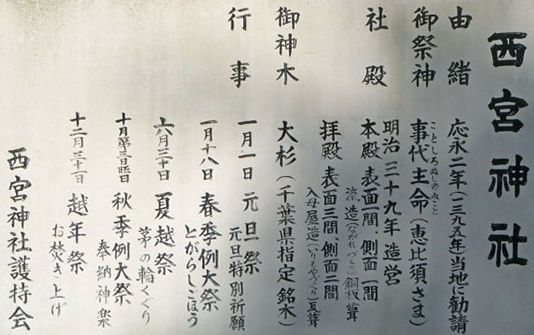 西宮神社
由緒 応永二年(一三九五年)当地に勧請
御祭神 事代主命(恵比須さま)
ことしろぬしのみこと
社殿 明治三十九年造営
本殿 表面間、側面一間
流造(ながれづくり)銅板葺
拝殿 表面三間、側面二間
入母屋造(いりもやづくり)瓦葺
御神木 大杉(千葉県指定銘木)
行事 一月一日 元旦祭
元旦特別祈願
一月十八日 春季例大祭
とがらしごぼう
六月三十日 夏越祭
茅の輪くぐり
十月第三日曜日 秋季例大祭
奉納神楽
十二月三十一日 越年祭
お焚き上げ
西宮神社護持会